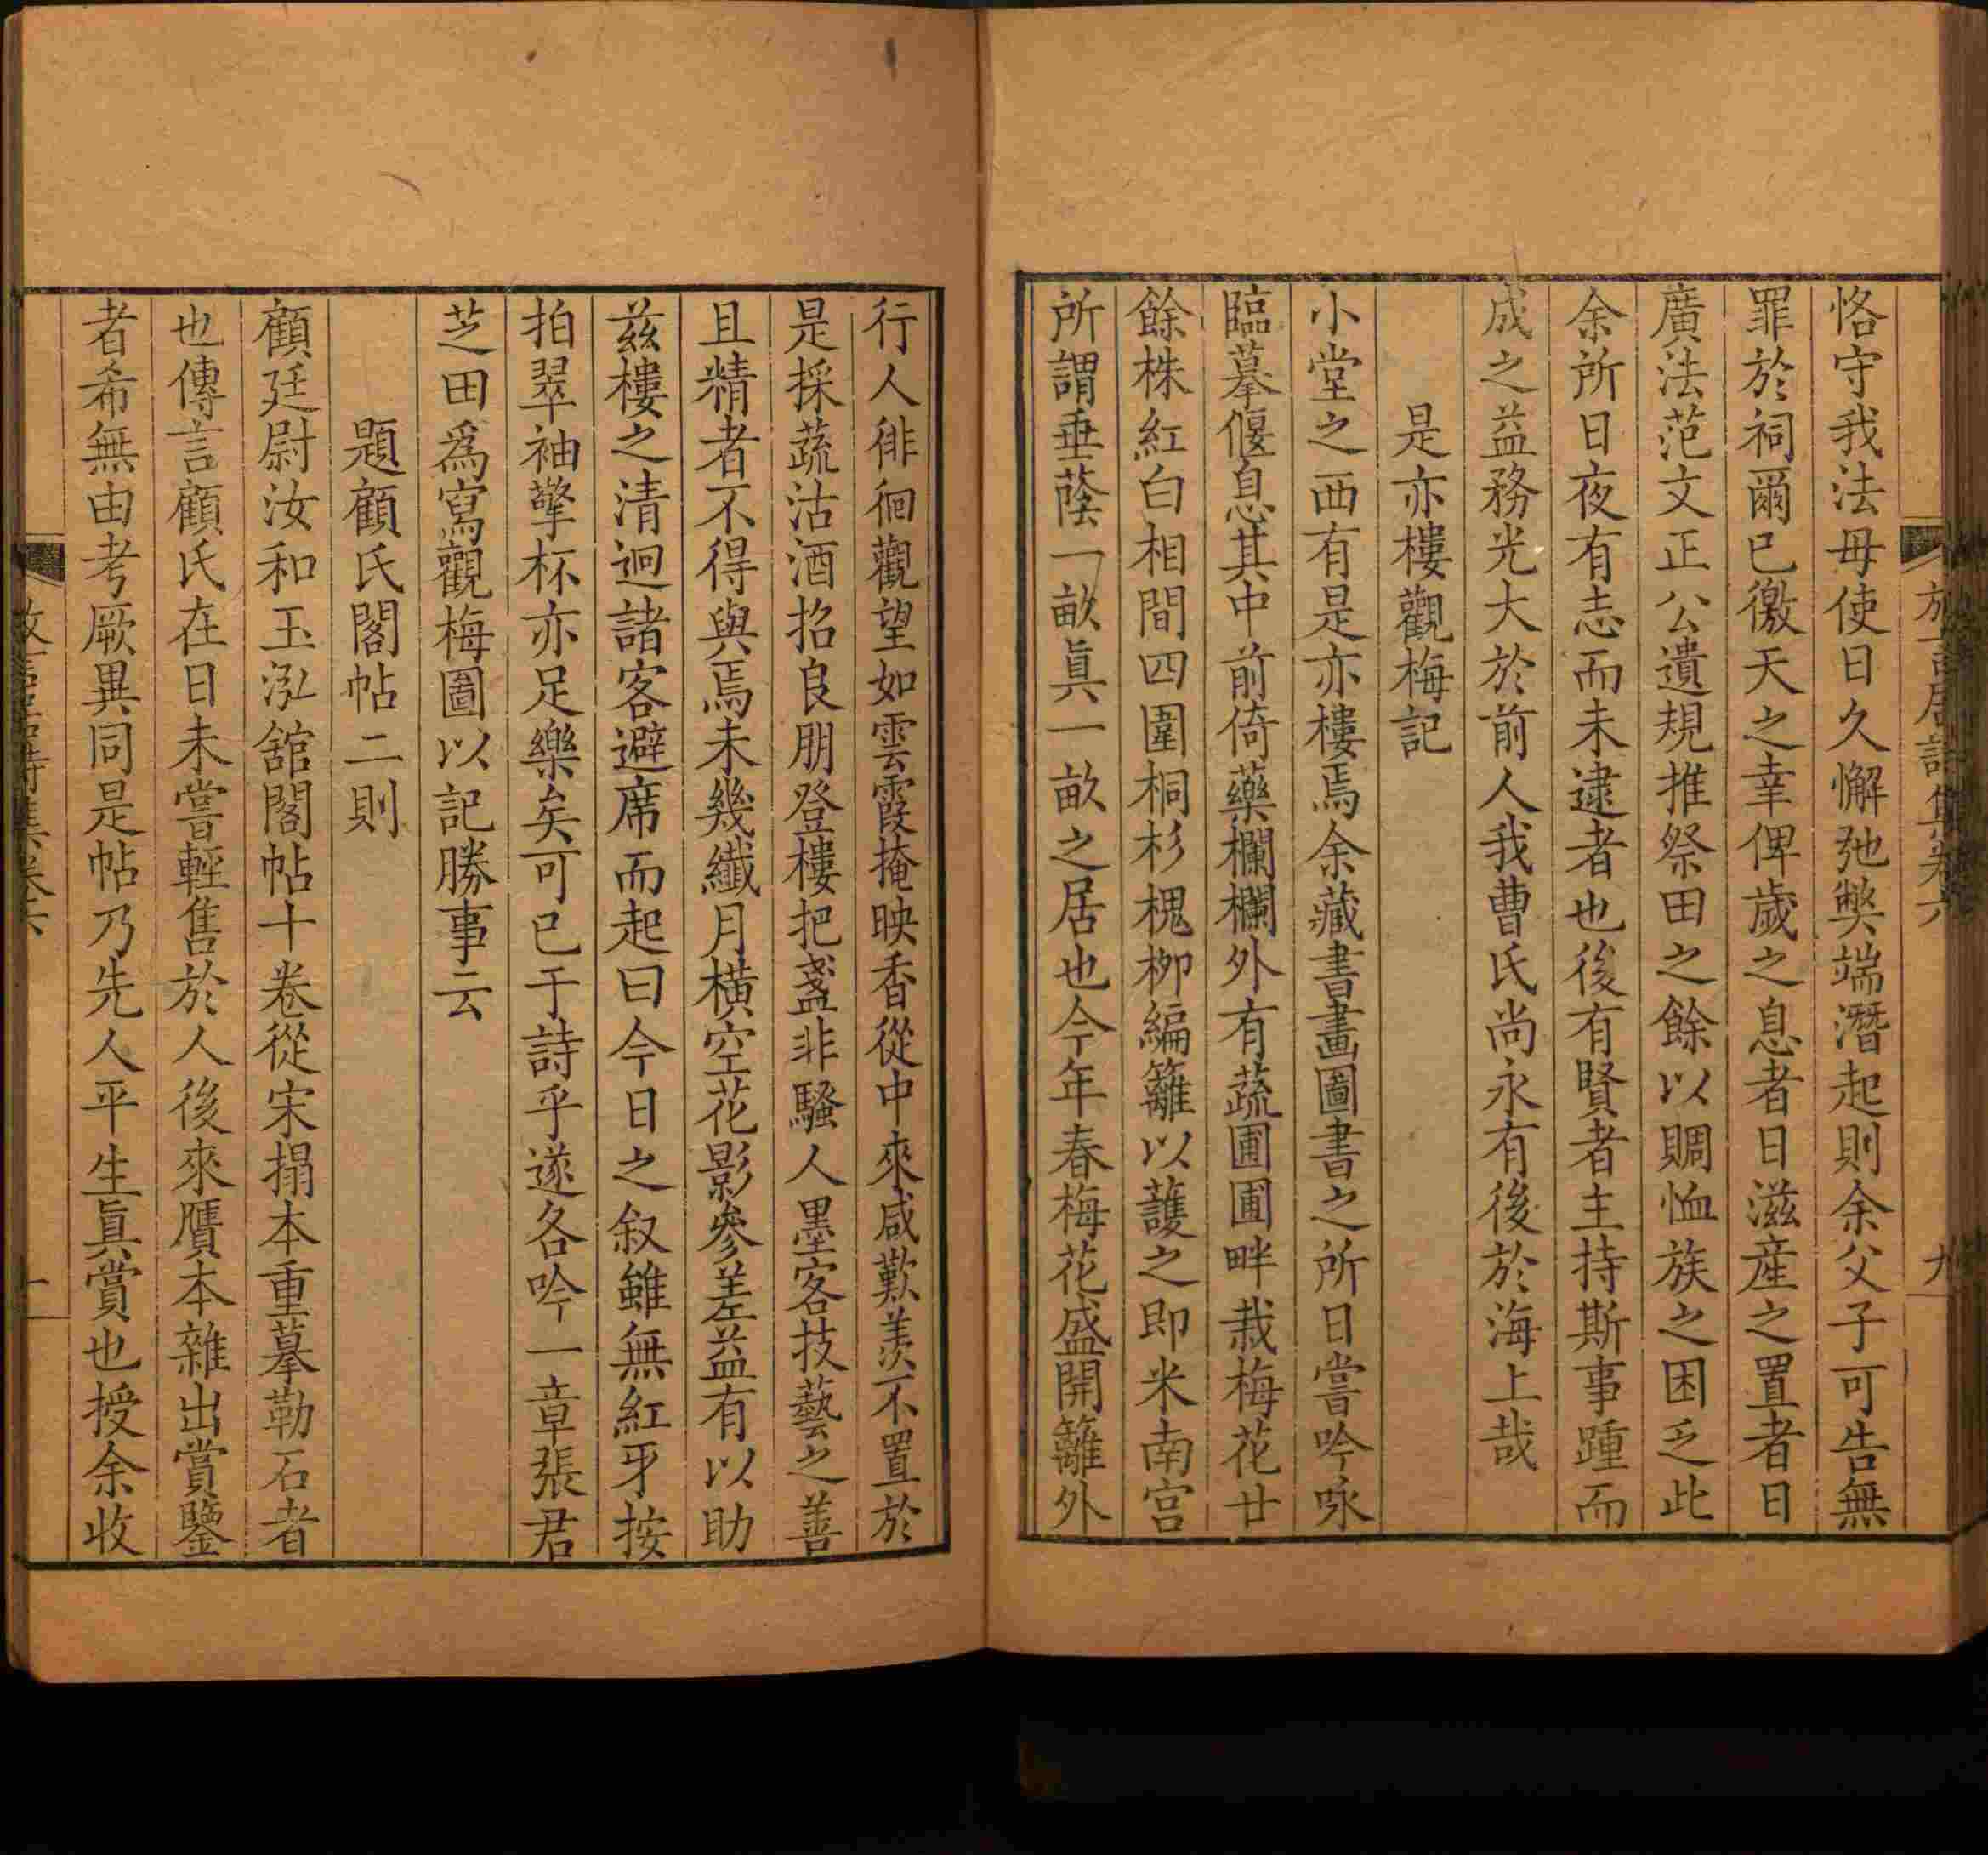 恪守我法毋使日久懈弛獘端潛起則余父子可告無
罪於祠爾已徼天之幸俾歲之息者日滋産之置者日
廣法范文正公遺規推祭田之餘以賙恤族之困乏此
余所日夜有志而未逮者也後有賢者主持斯事踵而
成之益務光大於前人我曹氏尚永有後於海上哉
是亦樓觀梅記
小堂之西有是亦樓焉余藏書畫圖書之所日嘗吟咏
臨摹偃息其中前倚藥欄欄外有蔬圃圃畔栽梅花廿
餘株紅白相間四圍桐杉槐柳編籬以護之即米南宫
所謂垂蔭一畝眞一畝之居也今年春梅花盛開籬外
行人徘徊觀望如雲霞掩映香從中來咸歎羡不置於
是採蔬沽酒招良朋登樓把盞非騷人墨客技藝之善
且精者不得與焉未幾纖月横空花影參差益有以助
兹樓之清迥諸客避席而起曰今日之叙雖無紅牙按
拍翠袖擎杯亦足樂矣可已于詩乎遂各吟一章張君
芝田爲寫觀梅圖以記勝事云
題顧氏閣帖二則
顧廷尉汝和玉泓舘閣帖十卷從宋搨本重摹勒石者
也傳言顧氏在日未嘗輕售於人後來贋本雜出賞鑒
者希無由考厥異同是帖乃先人平生眞賞也授余收